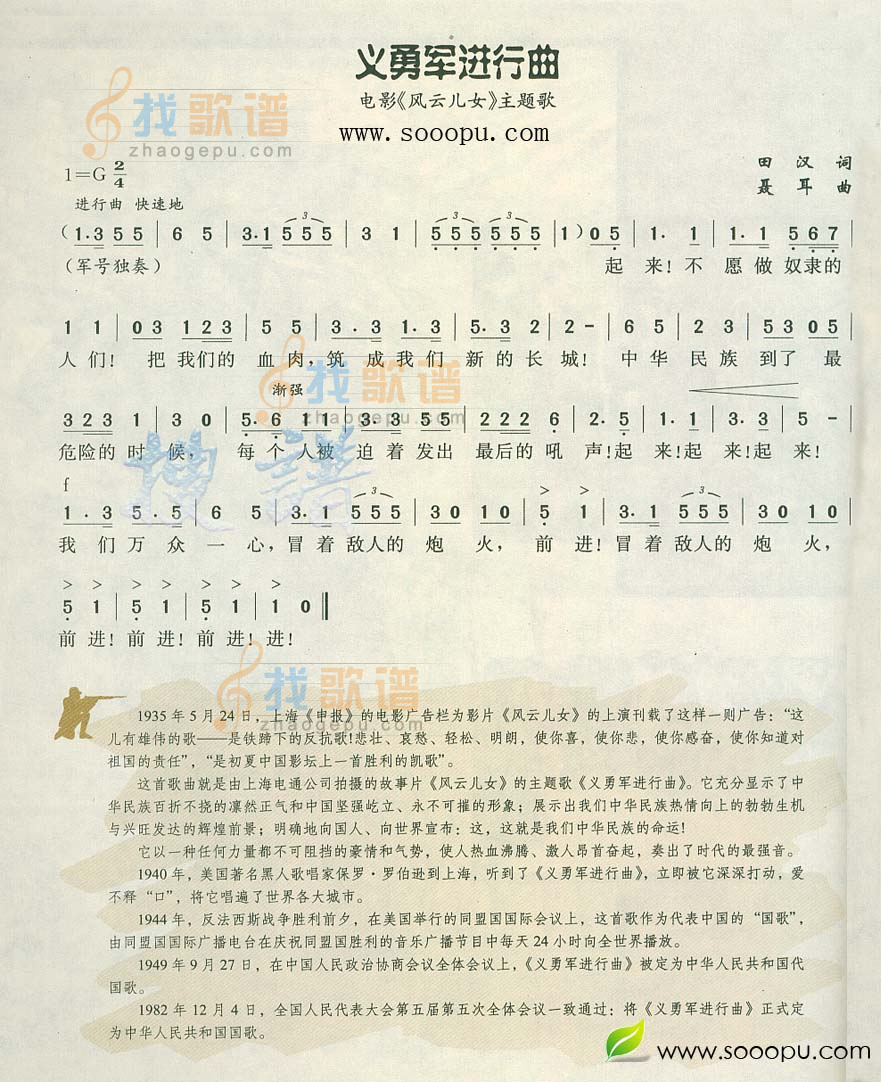 义勇军进行曲
电影《风云儿女》主题歌
找歌谱
zhaogepu.com
www.sooopu.com
1=G 2/4
田 汉 词
聂 耳 曲
进行曲 快速地
3 3
3
(1·3 5 5 | 6 5 | 3·1 5 5 5 | 3 1 | 5 5 5 5 5 5 | 1) 0 5 | 1· 1 | 1·1 5 6 7 |
(军号独奏) 起 来! 不 愿 做 奴 隶 的
1 1 | 0 3 1 2 3 | 5 5 | 3·3 1·3 | 5·3 2 | 2 - | 6 5 | 2 3 | 5 3 0 5 |
人 们! 把 我 们 的 血 肉, 筑 成 我 们 新 的 长 城! 中 华 民 族 到 了 最
渐强
找歌谱
zhaogepu.com
3 2 3 1 | 3 0 | 5·6 1 1 | 3·3 5 5 | 2 2 2 6 | 2· 5 | 1· 1 | 3· 3 | 5 - |
危 险 的 时 候, 每 个 人 被 迫 着 发 出 最 后 的 吼 声! 起 来! 起 来! 起 来!
搜谱
f
3 3
1·3 5·5 | 6 5 | 3·1 5 5 5 | 3 0 1 0 | 5 1 | 3·1 5 5 5 | 3 0 1 0 |
我 们 万 众 一 心, 冒 着 敌 人 的 炮 火, 前 进! 冒 着 敌 人 的 炮 火,
> > > > > > >
5 1 | 5 1 | 5 1 | 1 0 ‖
前 进! 前 进! 前 进! 进!
找歌谱
zhaogepu.com
1935 年 5 月 24 日,上海《申报》的电影广告栏为影片《风云儿女》的上演刊载了这样一则广告:“这
儿有雄伟的歌——是铁蹄下的反抗歌!悲壮、哀愁、轻松、明朗,使你喜,使你悲,使你感奋,使你知道对
祖国的责任”,“是初夏中国影坛上一首胜利的凯歌”。
这首歌曲就是由上海电通公司拍摄的故事片《风云儿女》的主题歌《义勇军进行曲》。它充分显示了中
华民族百折不挠的凛然正气和中国坚强屹立、永不可摧的形象;展示出我们中华民族热情向上的勃勃生机
与兴旺发达的辉煌前景;明确地向国人、向世界宣布:这,这就是我们中华民族的命运!
它以一种任何力量都不可阻挡的豪情和气势,使人热血沸腾、激人昂首奋起,奏出了时代的最强音。
1940 年,美国著名黑人歌唱家保罗·罗伯逊到上海,听到了《义勇军进行曲》,立即被它深深打动,爱
不释“口”,将它唱遍了世界各大城市。
1944 年,反法西斯战争胜利前夕,在美国举行的同盟国国际会议上,这首歌作为代表中国的“国歌”,
由同盟国国际广播电台在庆祝同盟国胜利的音乐广播节目中每天 24 小时向全世界播放。
1949 年 9 月 27 日,在中国人民政治协商会议全体会议上,《义勇军进行曲》被定为中华人民共和国代
国歌。
1982 年 12 月 4 日,全国人民代表大会第五届第五次全体会议一致通过:将《义勇军进行曲》正式定
为中华人民共和国国歌。
www.sooopu.com